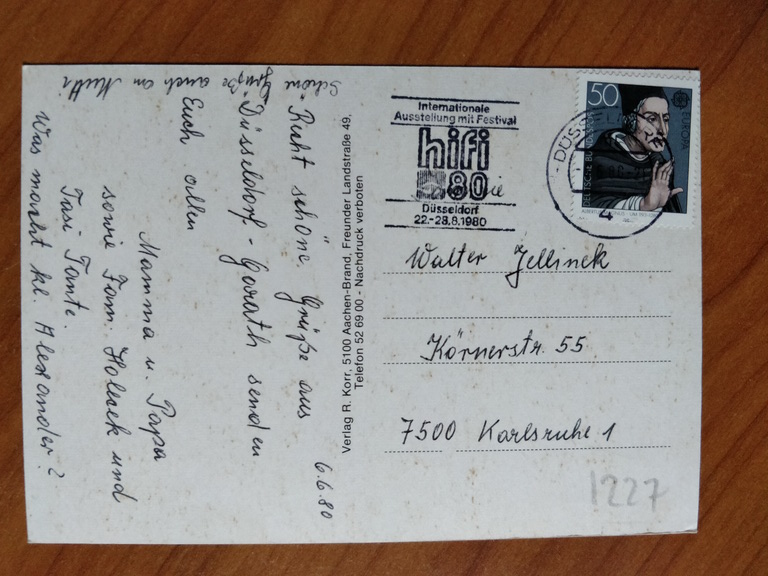 6.6.80
Recht schöne Grüße aus
Düsseldorf - Garath senden
Euch allen
Mamma u. Papa
sowie Fam. Holecek und
Tasi Tante.
Was macht kl. Alexander?
Schöne Grüße auch an
Verlag R. Korr, 5100 Aachen-Brand, Freunder Landstraße 49,
Telefon 52 69 00 - Nachdruck verboten
Internationale
Ausstellung mit Festival
hifi
80
Düsseldorf
22.-28.8.1980
DÜSSELD
4
50
EUROPA
DEUTSCHE BUNDESPOST
Walter Jellinek
Körnerstr. 55
7500 Karlsruhe 1
1227